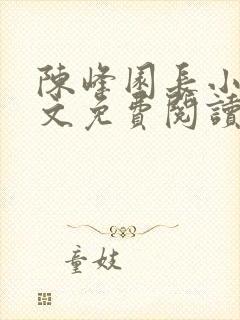 陳峰園長小
文免費閱讀
童妓